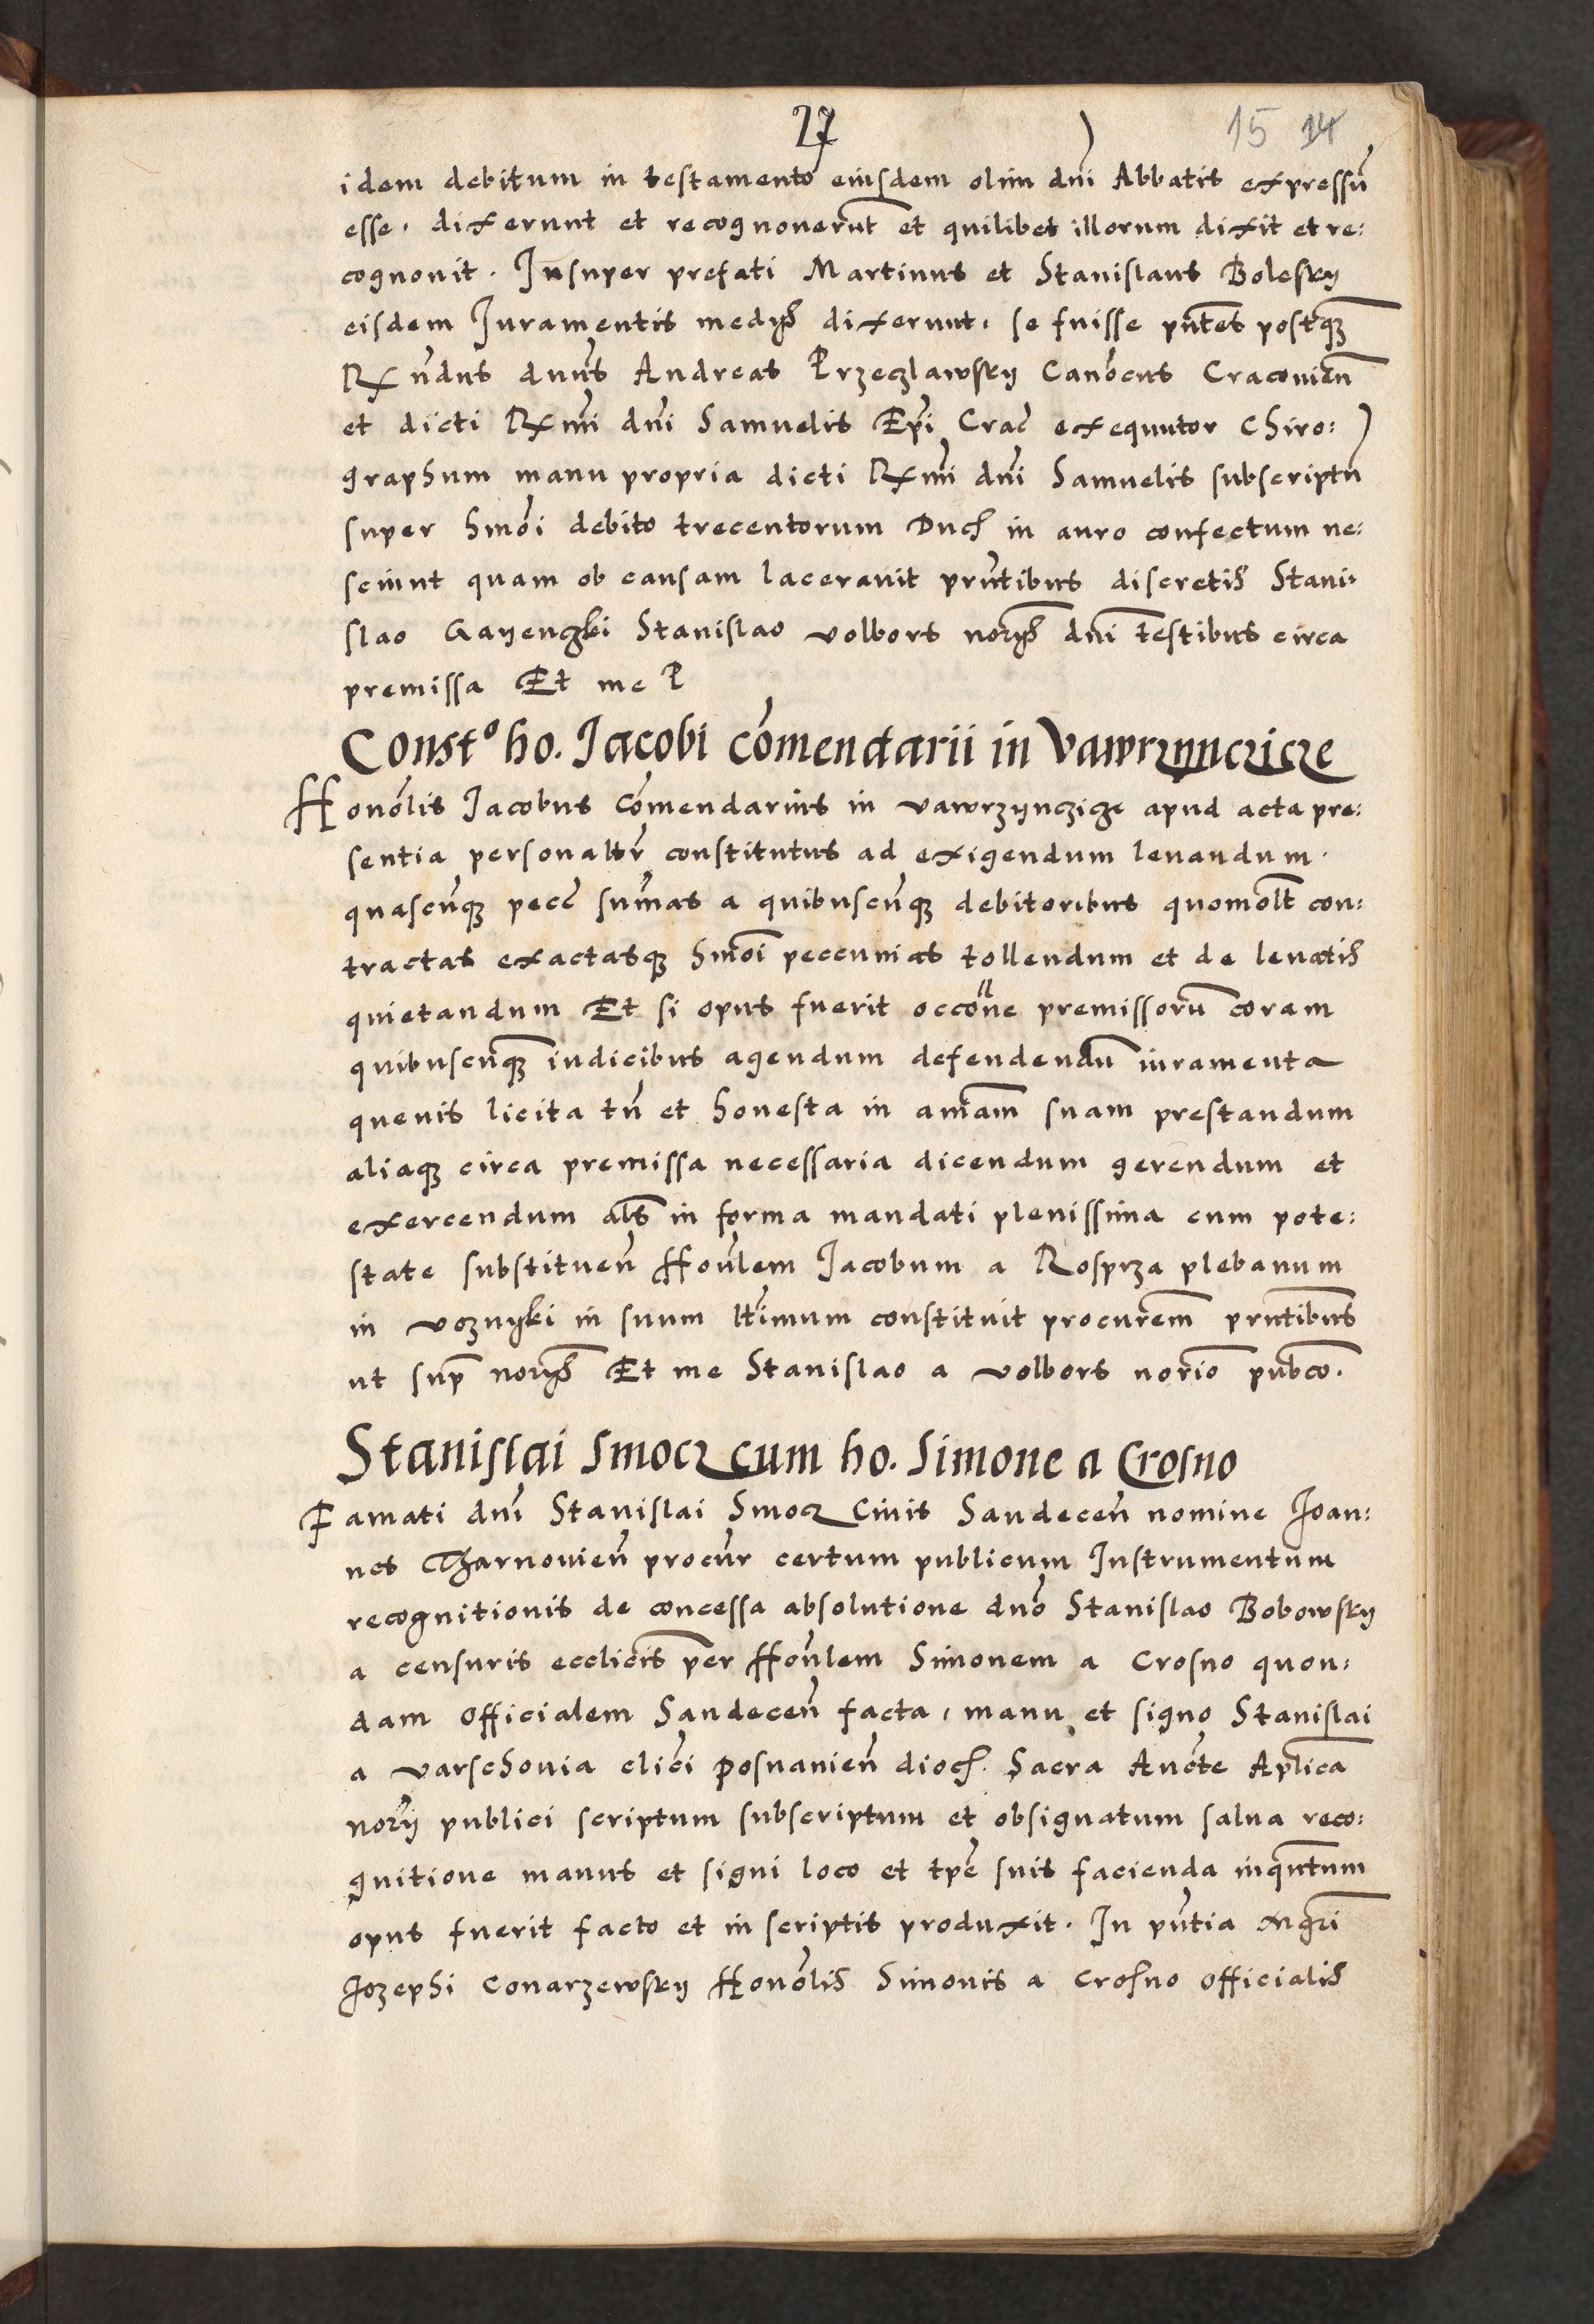 27
15 14
idem debitum in testamento eiusdem olim dnī Abbatis expressū
esse, dixerunt et recognoverūt et quilibet illorum dixit et re:
cognovit. Insuper prefati Martinus et Stanislaus Bolesky
eisdem Iuramentis medys dixerunt, se fuisse pn̄tes postq̄
Rx n̄dus dnn̄s Andreas Przeczlawsky Canōcus Cracovien̄
et dicti Rxmī dnī Samuelis Ep̄i Crac̄ exequutor Chiro:
graphum manu propria dicti Rxmī dnī Samuelis subscriptū
super hmōi debito trecentorum Duc̄ in auro confectum ne:
sciunt quam ob causam laceravit prn̄tibus discretis Stani:
slao Gayenczki Stanislao volbors norys̄ dnī testibus circa
premissa Et me P
Const⁰ ho. Iacobi cōmendarii in Vawrzynczicze
Honōlis Iacobus Cōmendarius in vawrzynczicze apud acta pre:
sentia personaltr̄ constitutus ad exigendum levandum.
quascūq; pecc̄ sum̄as a quibuscūq; debitoribus quomolt̄ con:
tractas exactasq; hmōi peccunias tollendum et de levatis
quietandum Et si opus fuerit occōne premissorū coram
quibuscūq; iudicibus agendum defendendū iuramenta
quevis licita tn̄ et honesta in aniām suam prestandum
aliaq; circa premissa necessaria dicendum gerendum et
exercendum als̄ in forma mandati plenissima cum pote:
state substituen̄ Hon̄lem Iacobum a Rosprza plebanum
in voznyki in suum ltīmum constituit procurēm prn̄tibus
ut sup̄ norys̄ Et me Stanislao a volbors norīo pub̄co.
Stanislai Smocz cum ho. Simone a Crosno
Famati dnī Stanislai Smocz Civis Sandecen̄ nomine Ioan:
nes Tharnovien̄ procur̄ certum publicum Instrumentum
recognitionis de concessa absolutione dnō Stanislao Bobowsky
a censuris ecclicīs per Hon̄lem Simonem a Crosno quon:
dam officialem Sandecen̄ facta, manu et signo Stanislai
a varschovia clicī posnanien̄ dioc̄. Sacra Auc̄te Ap̄lica
nory̅ publici scriptum subscriptum et obsignatum salva reco:
gnitione manus et signi loco et tp̄e suis facienda inqn̄tum
opus fuerit facto et in scriptis produxit. In pn̄tia Mgrī
Iozephi Conarzewsky Honōlis Simonis a Crosno officialis